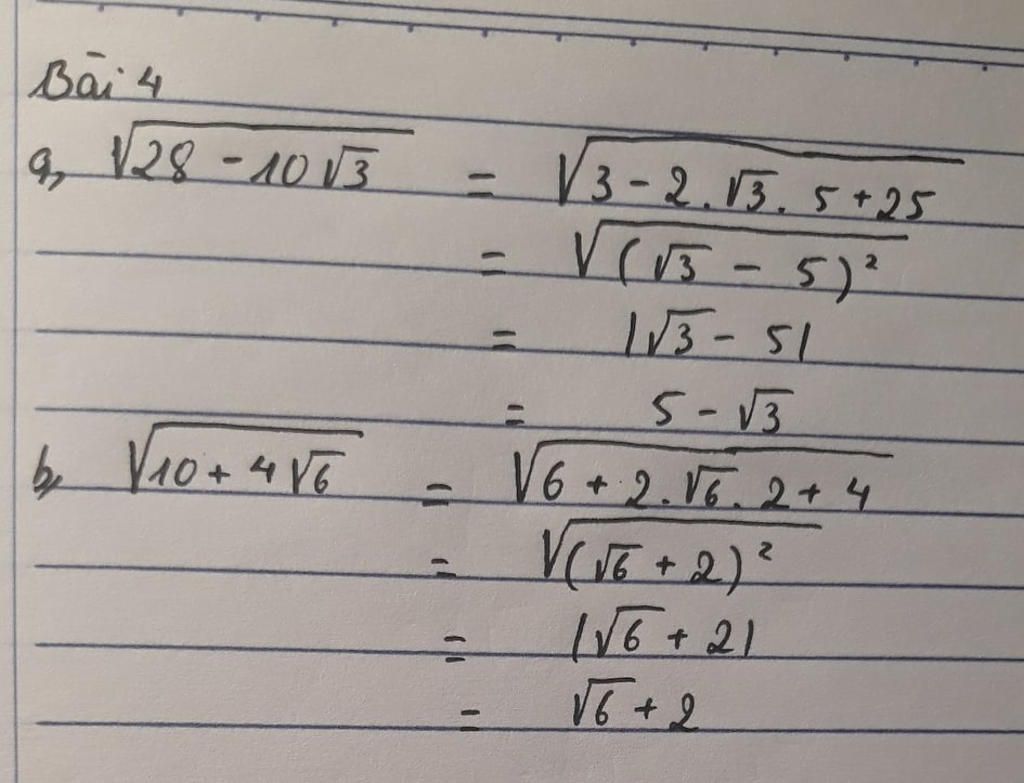 Bài 4
a, √(28 - 10√3) = √(3 - 2.√3. 5 + 25)
= √((√3 - 5)²)
= |√3 - 5|
= 5 - √3
b, √(10 + 4√6) = √(6 + 2.√6. 2 + 4)
= √((√6 + 2)²)
= |√6 + 2|
= √6 + 2